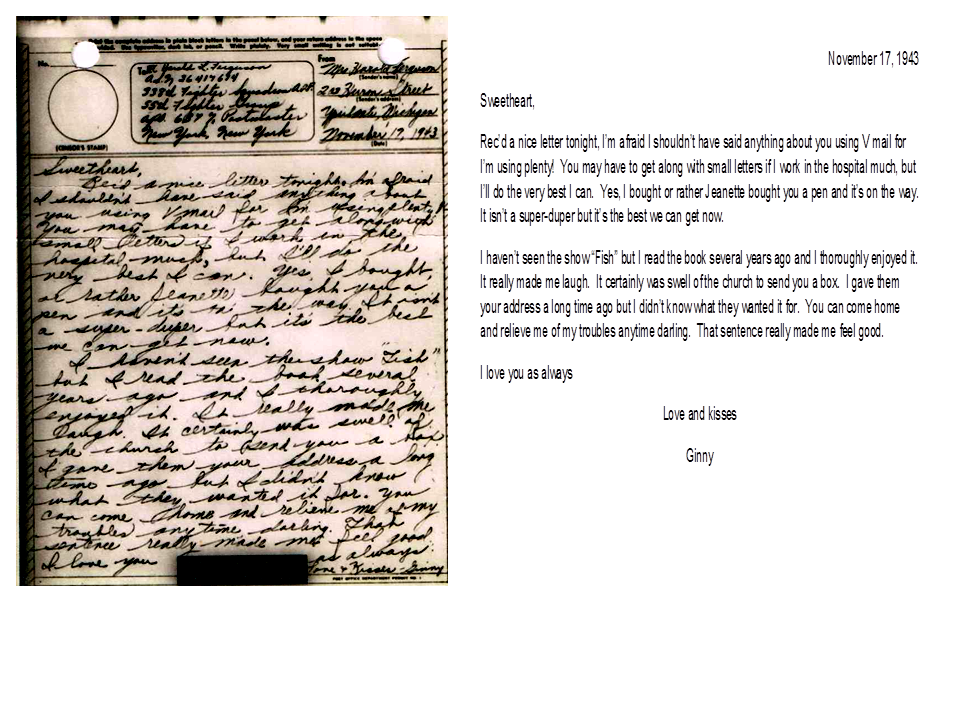 Print the complete address in plain block letters in the panel below, and your return address in the space
provided. Use typewriter, dark ink, or pencil. Write plainly. Very small writing is not suitable.
No.
(CENSOR'S STAMP)
To
Harold L. Ferguson
A.S.N 36417694
338th Fighter Squadron A.A.F.
55th Fighter Group
New York, New York
From
Mrs Harold Ferguson
(Sender's name)
Huron Street
(Sender's address)
Ypsilanti, Michigan
November 17, 1943
(Date)
Sweetheart,
Rec'd a nice letter tonight, I'm afraid
I shouldn't have said anything about
you using V mail for I'm using plenty!
You may have to get along with
small letters if I work in the
hospital much, but I'll do the
very best I can. Yes, I bought,
or rather Jeanette bought you a
pen and it's on the way. It isn't
a super-duper but it's the best
we can get now.
I haven't seen the show "Fish"
but I read the book several
years ago and I thoroughly
enjoyed it. It really made me
laugh. It certainly was swell of
the church to send you a box
I gave them your address a long
time ago but I didn't know
what they wanted it for. You
can come home and relieve me of my
troubles anytime darling. That
sentence really made me feel good.
I love you as always
Love + Kisses - Ginny
POST OFFICE DEPARTMENT PERMIT NO. 1
November 17, 1943
Sweetheart,
Rec'd a nice letter tonight, I'm afraid I shouldn't have said anything about you using V mail for
I'm using plenty! You may have to get along with small letters if I work in the hospital much, but
I'll do the very best I can. Yes, I bought or rather Jeanette bought you a pen and it's on the way.
It isn't a super-duper but it's the best we can get now.
I haven't seen the show "Fish" but I read the book several years ago and I thoroughly enjoyed it.
It really made me laugh. It certainly was swell of the church to send you a box. I gave them
your address a long time ago but I didn't know what they wanted it for. You can come home
and relieve me of my troubles anytime darling. That sentence really made me feel good.
I love you as always
Love and kisses
Ginny